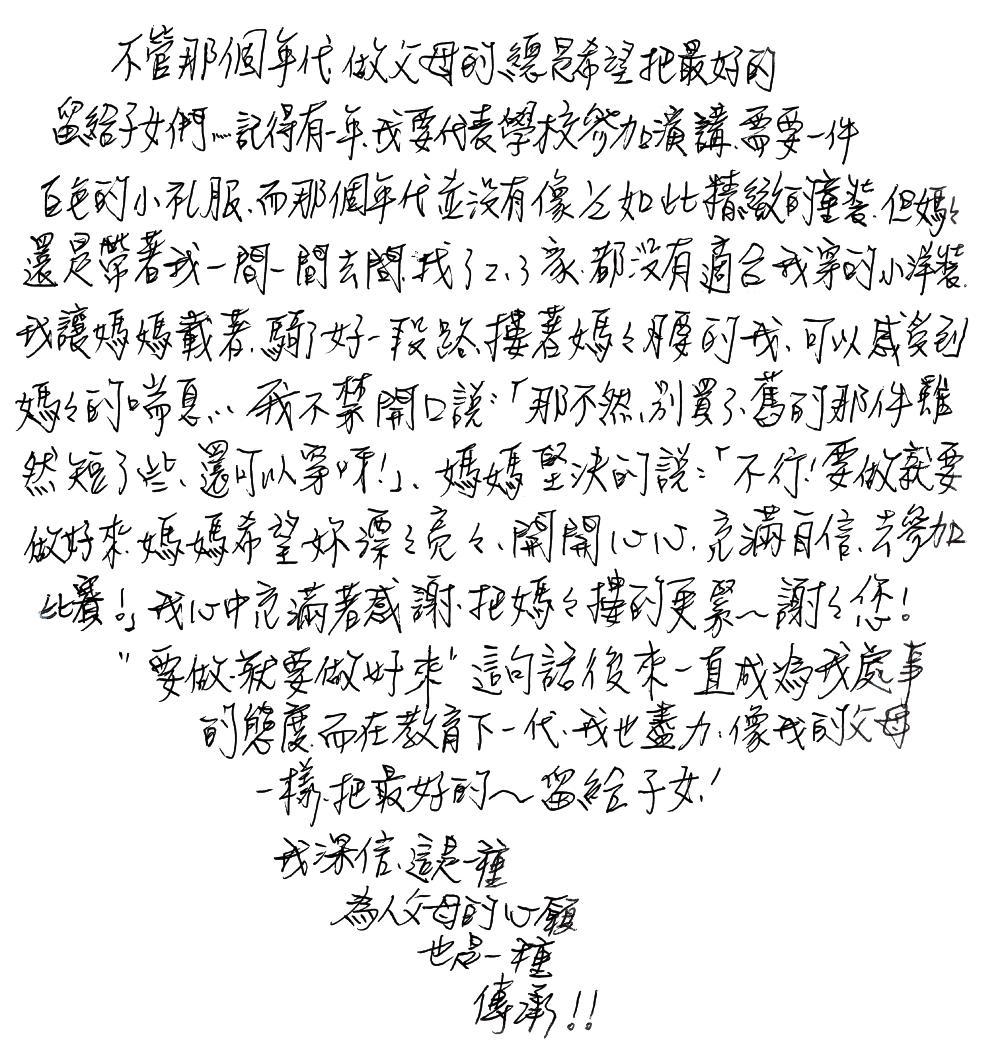 不管那個年代、做父母的總是希望把最好的
留給子女們....記得有一年、我要代表學校參加演講、需要一件
白色的小礼服、而那個年代並沒有像今如此精緻的童裝、但媽々
還是帶著我一間一間去問、找了2、3家、都沒有適合我穿的小洋裝、
我讓媽媽載著、騎了好一段路、摟著媽々腰的我、可以感受到
媽々的喘息... 我不禁開口說:「那不然、別買了、舊的那件雖
然短了些、還可以穿呀!」、媽媽堅決的說:「不行!要做就要
做好來、媽媽希望妳漂々亮々、開開心心、充滿自信、去參加
比賽!」我心中充滿著感謝、把媽々摟的更緊～謝々您!
"要做、就要做好來"這句話後來一直成為我處事
的態度、而在教育下一代、我也盡力、像我的父母
一樣、把最好的～留給子女!
我深信、這是一種
為人父母的心願
也是一種
傳承!!